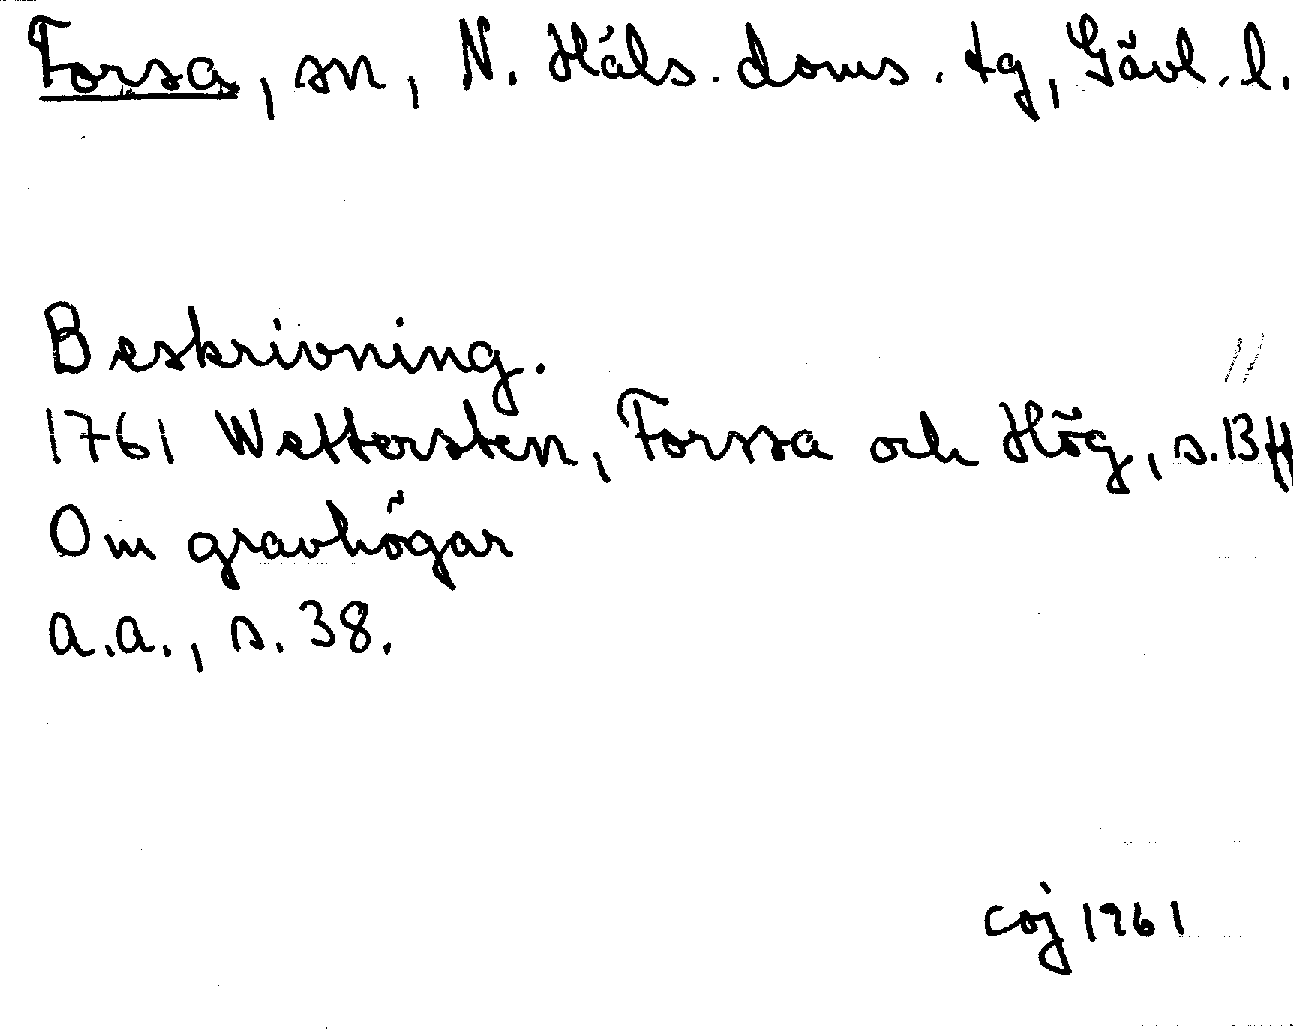 Forsa, sn, N. Häls. doms. tg, Gävl. l.
Beskrivning.
1761 Wettersten, Forssa och Hög, s. 13 ff
Om gravhögar
a.a., s. 38.
coj 1961